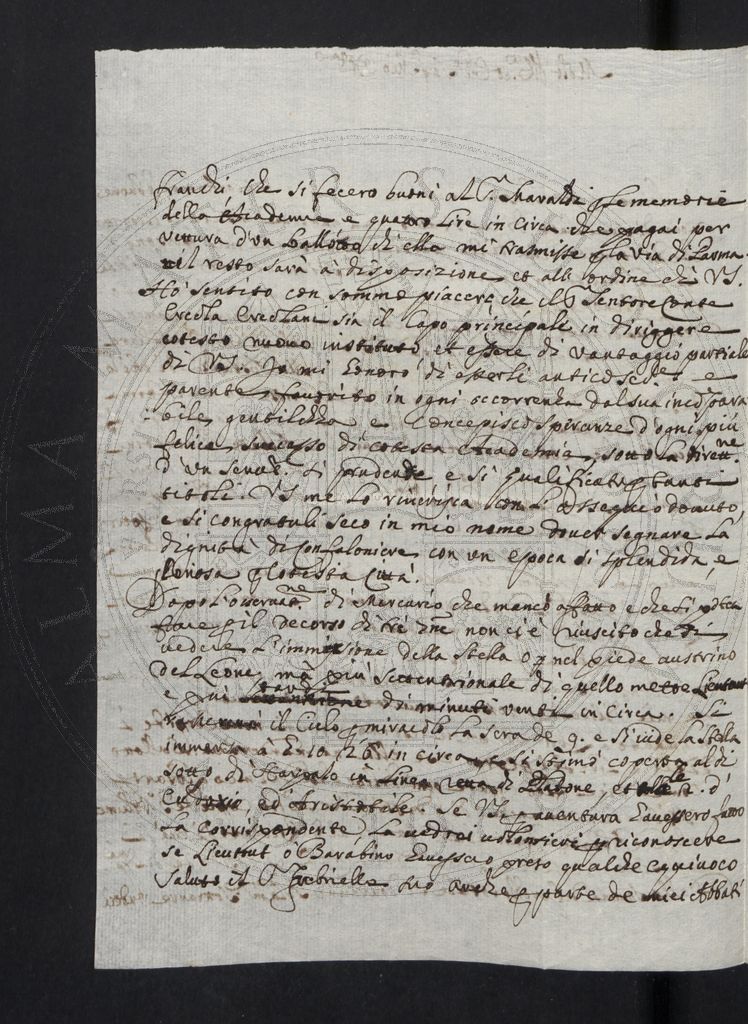 franchi, che si fecero buoni al S.r Maraldi p le memorie
della Academia e quattro lire in circa che pagai per
vettura d'un ballotto ch ella mi trasmisse p la via di Parma
il resto sarà à disposizione et all ordine di VS.
Hò sentito con sommo piacere che il S.r Senatore Conte
Ercole Ercolani sia il Capo principale in diriggere
cotesto nuovo instituto et essere di vantaggio
di VS. Io mi honoro di esserli antico ser.e e
parente, favorito in ogni occorrenza dal sua incompara
bile gentilezza e Concepisco speranze d'ogni più
felice successo di cotesta Academia, sotto la dirett.ne
d'un Senat. si prudente e si qualificato p tanti
titoli. VS me lo riverisca con l Ossequio dovuto,
e si congratuli seco in mio nome dover segnare la
dignità di Confaloniere con un epoca si splendida, e
p cotesta Città.
Dopo l'osservat.ne di Mercurio che mancò affatto e che si potea
fare p il decorso di trè non ci è riuscito che di
vedere l'immersione della Stella nel piede austrino
del Leone, mà più settentrionale di quello mette Lieutaut
e qui di minuti venti in Circa. Si
il Cielo p miracolo la sera de 9. e si vide la Stella
immersa à 10 26 in circa si stimò coperta al di
sotto di Harpalo in linea retta di Platone, et
Eudoxio, ed Aristotile. Se VS. p aventura havessero fatto
la Corrispondente la vedrei volontieri p riconoscere
se Lieutaut ò Barabino havessero preso qualche equivoco
Saluto il S.r Gabriello suo anche p parte de miei Abbati